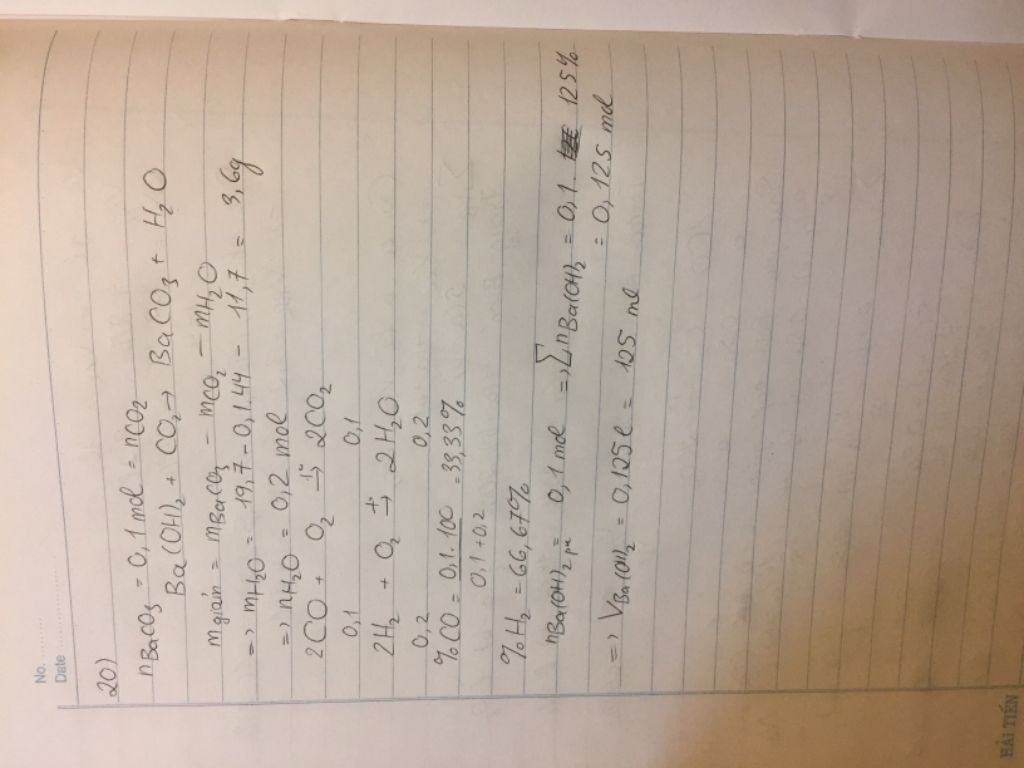 No. ............
Date ............
20)
nBaCO₃ = 0,1 mol = nCO₂
Ba(OH)₂ + CO₂ → BaCO₃ + H₂O
m giảm = mBaCO₃ - mCO₂ - mH₂O
=> mH₂O = 19,7 - 0,1.44 - 11,7 = 3,6g
=> nH₂O = 0,2 mol
2CO + O₂ →t° 2CO₂
0,1 0,1
2H₂ + O₂ →t° 2H₂O
0,2 0,2
%CO = 0,1.100 / 0,1+0,2 = 33,33%
%H₂ = 66,67%
nBa(OH)₂ pư = 0,1 mol => ∑nBa(OH)₂ = 0,1. 125%
= 0,125 mol
=> VBa(OH)₂ = 0,125l = 125 ml
HẢI TIẾN